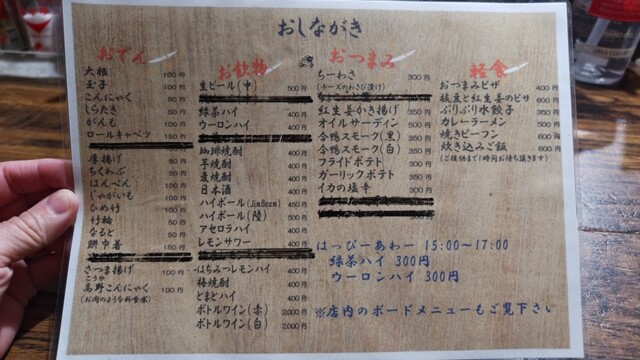 おしながき
おでん
大根 100円
玉子 100円
こんにゃく 60円
しらたき 60円
がんも 100円
ロールキャベツ 150円
厚揚げ 60円
ちくわぶ 60円
はんぺん 100円
じゃがいも 100円
ひめ竹 100円
竹輪 60円
なると 60円
餅巾着 150円
さつま揚げ 100円
こうや
高野こんにゃく 100円
(お肉のような料食感)
お飲物
生ビール(中) 500円
緑茶ハイ 400円
ウーロンハイ 400円
珈琲焼酎 400円
芋焼酎 400円
麦焼酎 400円
日本酒 400円
ハイボール(JimBeem) 450円
ハイボール(陸) 500円
アセロラハイ 400円
レモンサワー 400円
はちみつレモンハイ 400円
梅焼酎 400円
とまとハイ 400円
ボトルワイン(赤) 2,000円
ボトルワイン(白) 2,000円
おつまみ
ちーわさ 300円
(チーズのわさび漬け)
紅生姜かき揚げ 350円
オイルサーディン 500円
合鴨スモーク(黒) 350円
合鴨スモーク(白) 350円
フライドポテト 300円
ガーリックポテト 350円
イカの塩辛 300円
軽食
おつまみピザ 400円
板麩と紅生姜のピザ 600円
ぷりぷり水餃子 350円
カレーラーメン 600円
焼きビーフン 600円
炊き込みご飯 600円
(ご提供まで1時間お待ち頂きます)
はっぴーあわー 15:00~17:00
緑茶ハイ 300円
ウーロンハイ 300円
※店内のボードメニューもご覧下さい